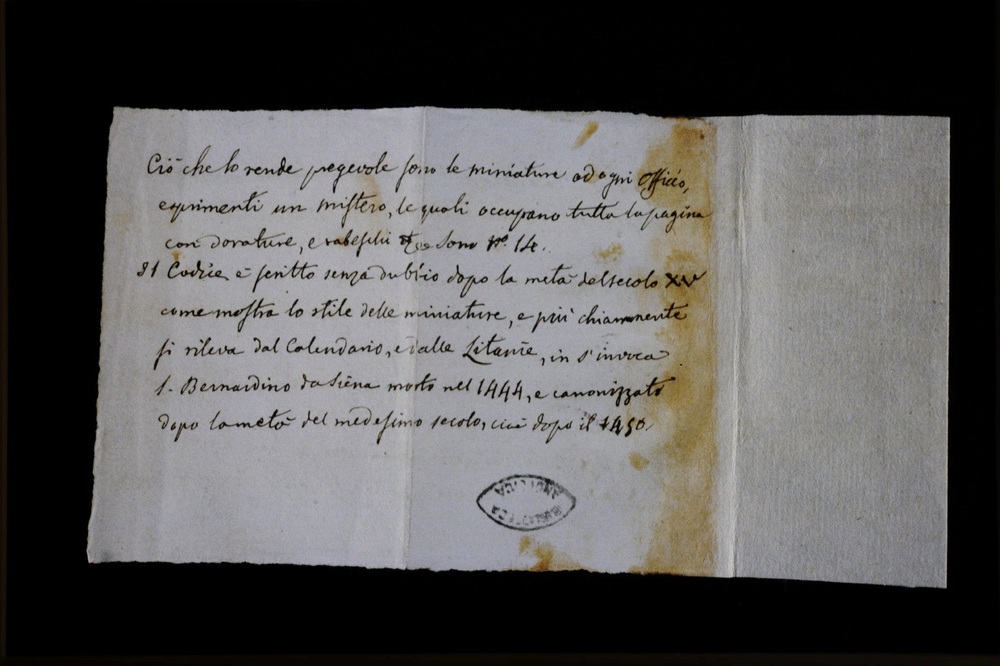 Ciò che lo rende pregevole sono le miniature ad ogni Officio,
esprimenti un mistero, le quali occupano tutta la pagina
con dorature, e rabeschi Sono n.° 14.
Il Codice è scritto senza dubbio dopo la metà del secolo XV
come mostra lo stile delle miniature, e più chiaramente
si rileva dal Calendario, e dalle Litanie, in s'invoca
S. Bernardino da Siena morto nel 1444, e canonizzato
dopo la metà del medesimo secolo, cioè dopo il 1450.
BIBLIOTECA
ANGELICA